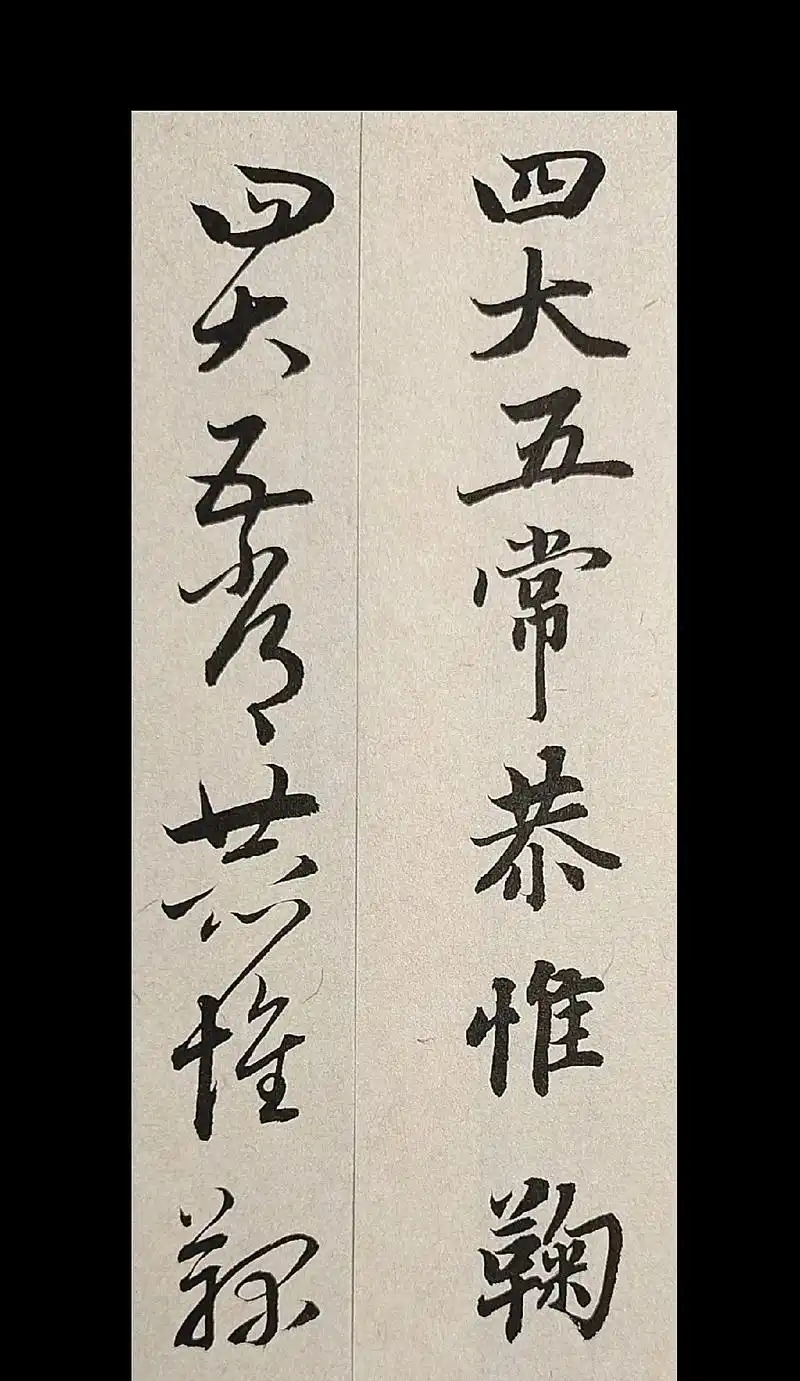 四大五常恭惟鞠
四大五常恭惟鞠